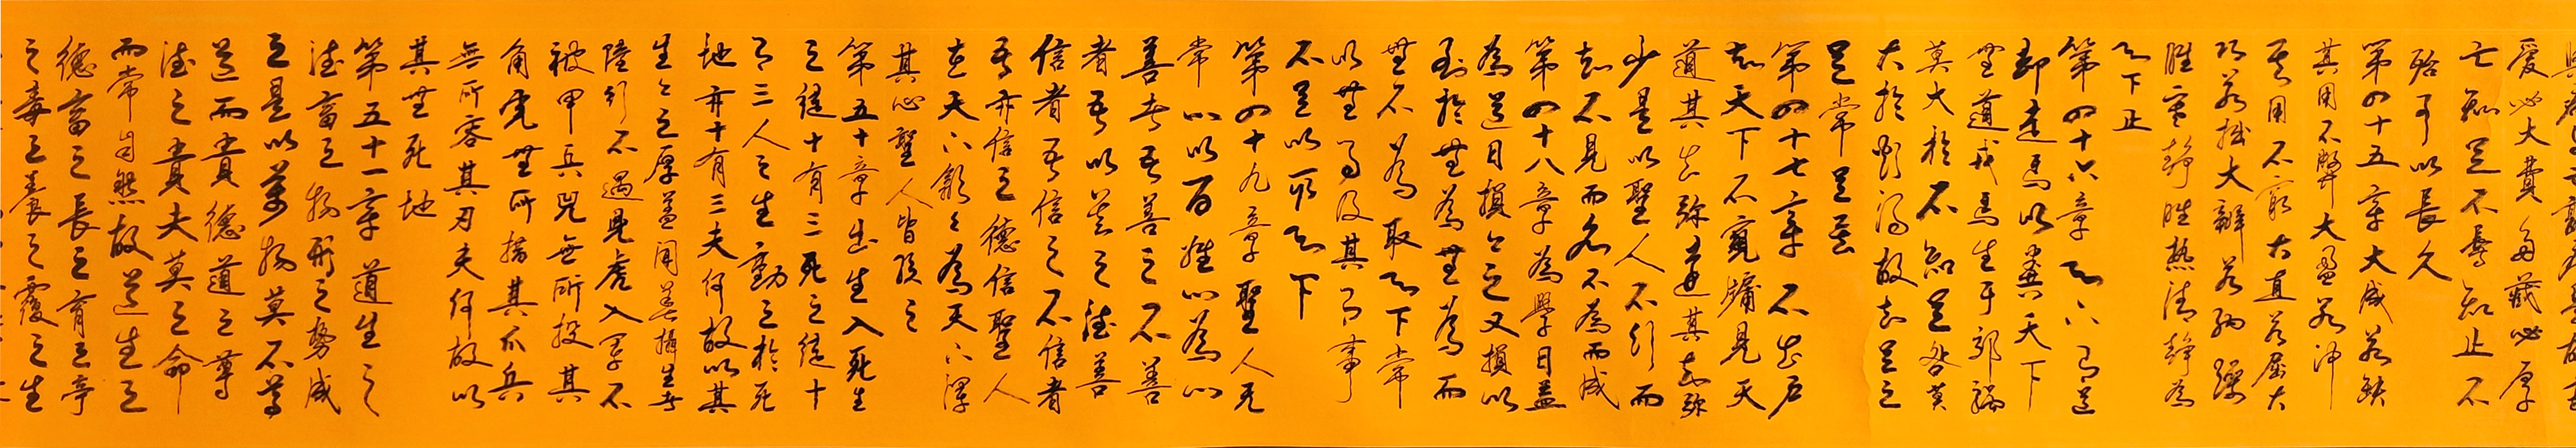 愛必大費多藏必厚
亡知足不辱知止不
殆可以長久
第四十五章大成若缺
其用不弊大盈若沖
其用不窮大直若屈大
巧若拙大辯若訥躁
勝寒靜勝熱清靜為
天下正
第四十六章天下有道
卻走馬以糞天下
無道戎馬生于郊禍
莫大於不知足咎莫
大於欲得故知足之
足常足矣
第四十七章不出戶
知天下不窺牖見天
道其出彌遠其知彌
少是以聖人不行而
知不見而名不為而成
第四十八章為學日益
為道日損々之又損以
至於無為無為而
無不為取天下常
以無事及其有事
不足以取天下
第四十九章聖人无
常心以百姓心為心
善者吾善之不善
者吾以善之德善
信者吾信之不信者
吾亦信之德信聖人
在天下歙々為天下渾
其心聖人皆孩之
第五十章出生入死生
之徒十有三死之徒十
有三人之生動之於死
地亦十有三夫何故以其
生々之厚蓋聞善攝生者
陸行不遇兕虎入軍不
被甲兵兕無所投其
角虎無所措其爪兵
無所容其刃夫何故以
其無死地
第五十一章道生之
德畜之物形之勢成
之是以萬物莫不尊
道而貴德道之尊
德之貴夫莫之命
而常自然故道生之
德畜之長之育之亭
之毒之養之覆之生